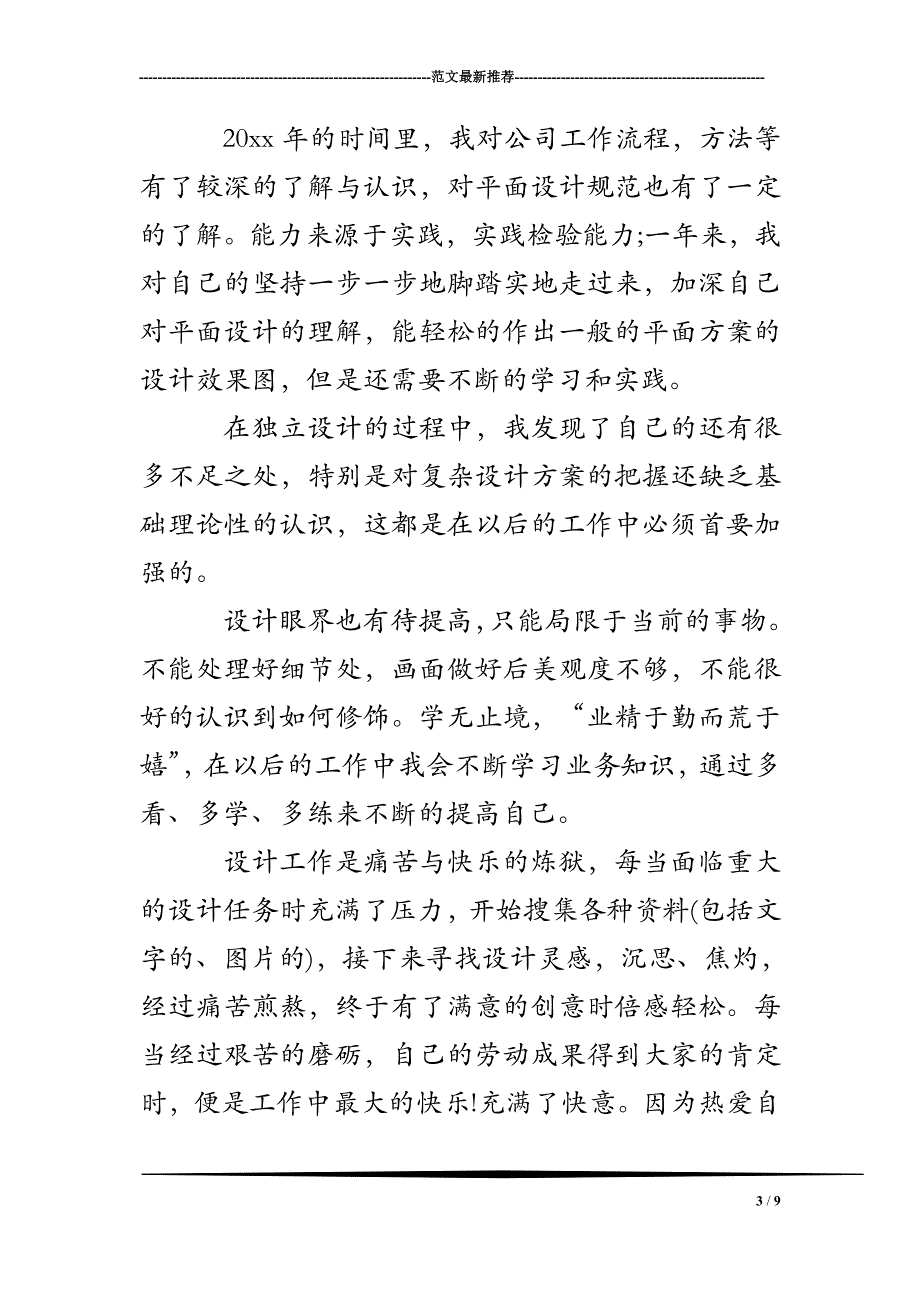 ---------------------------------------------------------------范文最新推荐------------------------------------------------------
20xx 年的时间里，我对公司工作流程，方法等
有了较深的了解与认识，对平面设计规范也有了一定
的了解。能力来源于实践，实践检验能力;一年来，我
对自己的坚持一步一步地脚踏实地走过来，加深自己
对平面设计的理解，能轻松的作出一般的平面方案的
设计效果图，但是还需要不断的学习和实践。
在独立设计的过程中，我发现了自己的还有很
多不足之处，特别是对复杂设计方案的把握还缺乏基
础理论性的认识，这都是在以后的工作中必须首要加
强的。
设计眼界也有待提高，只能局限于当前的事物。
不能处理好细节处，画面做好后美观度不够，不能很
好的认识到如何修饰。学无止境，“业精于勤而荒于
嬉”，在以后的工作中我会不断学习业务知识，通过多
看、多学、多练来不断的提高自己。
设计工作是痛苦与快乐的炼狱，每当面临重大
的设计任务时充满了压力，开始搜集各种资料(包括文
字的、图片的)，接下来寻找设计灵感，沉思、焦灼，
经过痛苦煎熬，终于有了满意的创意时倍感轻松。每
当经过艰苦的磨砺，自己的劳动成果得到大家的肯定
时，便是工作中最大的快乐!充满了快意。因为热爱自
3 / 9